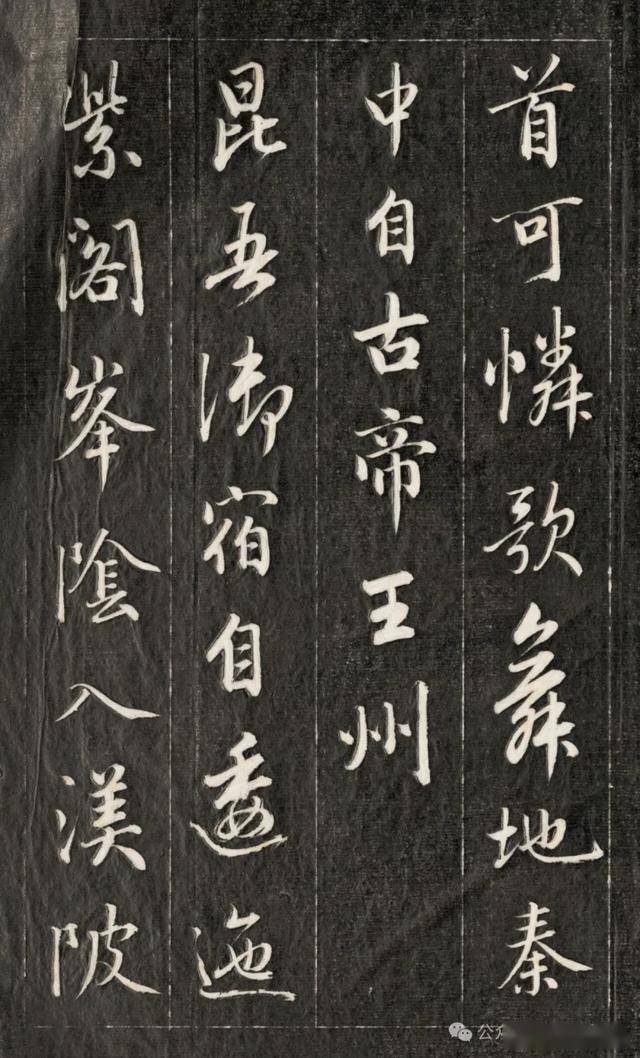 首可憐歌舞地秦
中自古帝王州
昆吾御宿自逶迤
紫閣峯陰入渼陂
公众